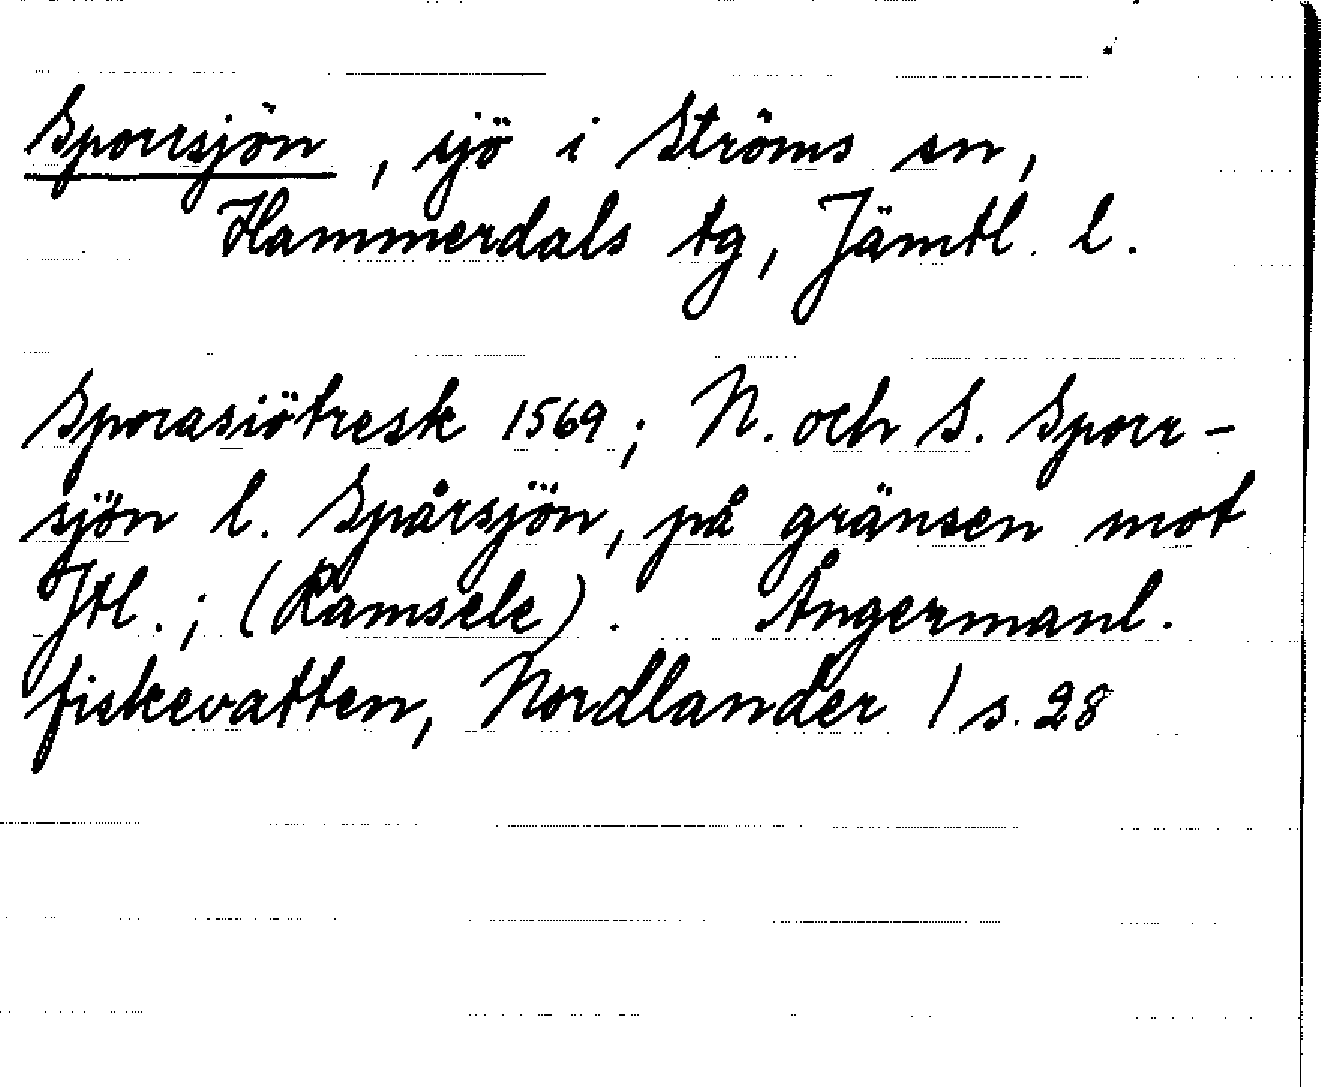 Sporrsjön, sjö i Ströms sn,
Hammerdals tg, Jämtl. l.
Sporasiötresk 1569; N. och S. Sporr-
sjön l. Spårsjön, på gränsen mot
Jtl.; (Ramsele). Ångermanl.
fiskevatten, Nordlander / s. 28